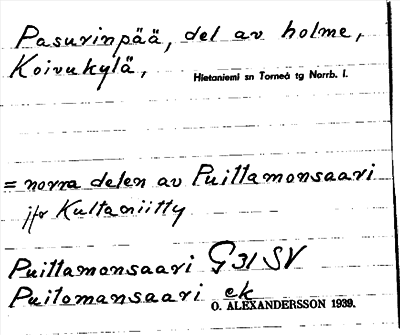 Pasurinpää, del av holme,
Koivukylä, Hietaniemi sn Torneå tg Norrb. l.
= norra delen av Puittamonsaari
jfr Kultaniitty
Puittamonsaari G31 SV
Puitomansaari ek
O. ALEXANDERSSON 1939.